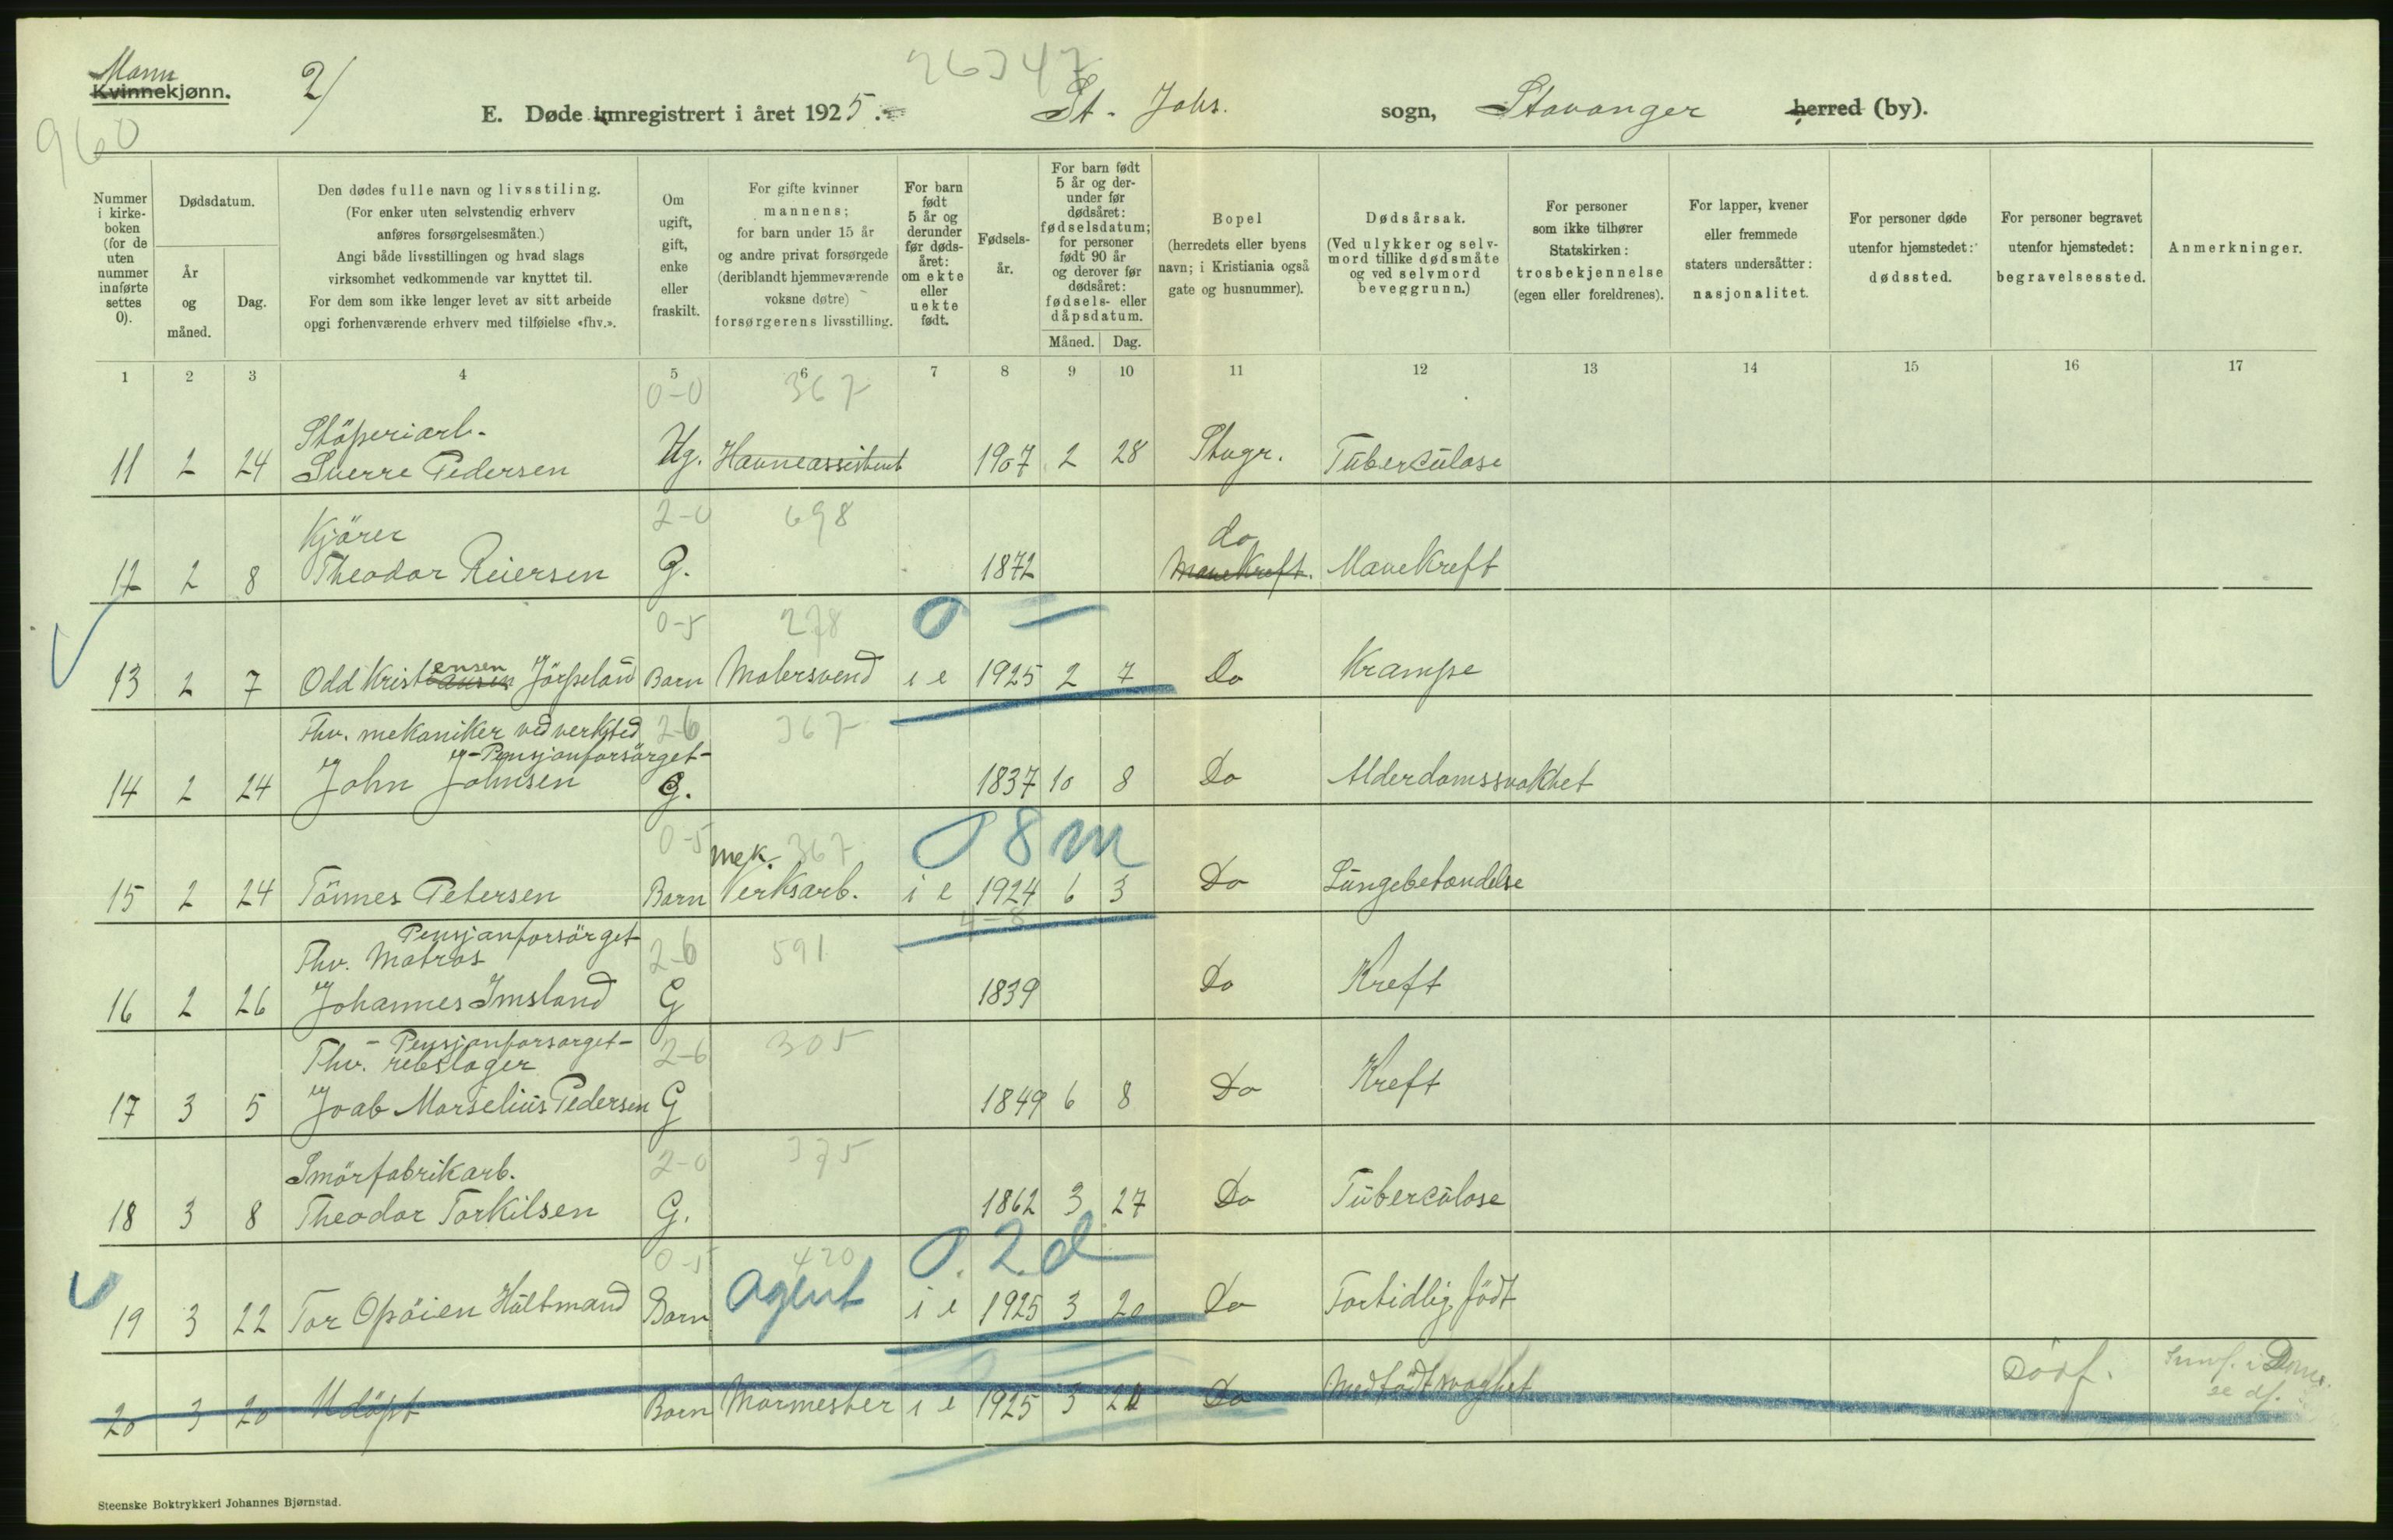 Mann
Kvinnekjønn.
2/
26347
960
E. Døde innregistrert i året 1925. St. Johs. sogn, Stavanger herred (by).
Nummer i kirkeboken (for de uten nummer innførte settes 0).
Dødsdatum.
År og måned.
Dag.
Den dødes fulle navn og livsstiling.
(For enker uten selvstendig erhverv
anføres forsørgelsesmåten.)
Angi både livsstillingen og hvad slags
virksomhet vedkommende var knyttet til.
For dem som ikke lenger levet av sitt arbeide
opgi forhenværende erhverv med tilføielse «fhv.».
Om ugift, gift, enke eller fraskilt.
For gifte kvinner
mannens;
for barn under 15 år
og andre privat forsørgede
(deriblandt hjemmeværende
voksne døtre)
forsørgerens livsstilling.
For barn født 5 år og derunder før dødsåret: om ekte eller uekte født.
Fødselsår.
For barn født 5 år og derunder før dødsåret: fødselsdatum; for personer født 90 år og derover før dødsåret: fødsels- eller dåpsdatum.
Måned. Dag.
Bopel
(herredets eller byens
navn; i Kristiania også
gate og husnummer).
Dødsårsak.
(Ved ulykker og selvmord tillike dødsmåte og ved selvmord beveggrunn.)
For personer
som ikke tilhører
Statskirken:
trosbekjennelse
(egen eller foreldrenes).
For lapper, kvener
eller fremmede
staters undersåtter:
nasjonalitet.
For personer døde
utenfor hjemstedet:
dødssted.
For personer begravet
utenfor hjemstedet:
begravelsessted.
Anmerkninger.
1 2 3 4 5 6 7 8 9 10 11 12 13 14 15 16 17
0-0 367
Støperiarb.
11 2 24 Sverre Pedersen Ug. Havneassistent 1907 2 28 Stvgr. Tuberculose
2-0 698
Kjører do
12 2 8 Theodor Reiersen G. 1872 Mavekreft. Mavekreft
0-5 278 0
13 2 7 Odd Kristiansen ensen Jørpeland Barn Malersvend i e 1925 2 7 Do Krampe
Fhv. mekaniker ved verksted 2-6 367
-Pensjonforsørget-
14 2 24 John Johnsen G. 1837 10 8 Do Alderdomssvakhet
0-5 mek. 367 0 8 m
15 2 24 Tønnes Petersen Barn Verksarb. i e 1924 6 3 Do Lungebetændelse
4-8
Pensjonforsørget
Fhv. Matros 2-6 591
16 2 26 Johannes Imsland G 1839 Do Kreft
-Pensjonforsørget-
Fhv. rebslager 2-6 305
17 3 5 Joab Marselius Pedersen G 1849 6 8 Do Kreft
2-0 375
Smørfabrikarb.
18 3 8 Theodor Torkilsen G. 1862 3 27 Do Tuberculose
0-5 420 0. 2. d
19 3 22 Tor Opøien Hultmand Barn Agent i e 1925 3 20 Do Fortidlig født
20 3 20 Udøpt Barn Murmester i e 1925 3 20 Do Medfødt svaghet Dødf.
Steenske Boktrykkeri Johannes Bjørnstad.